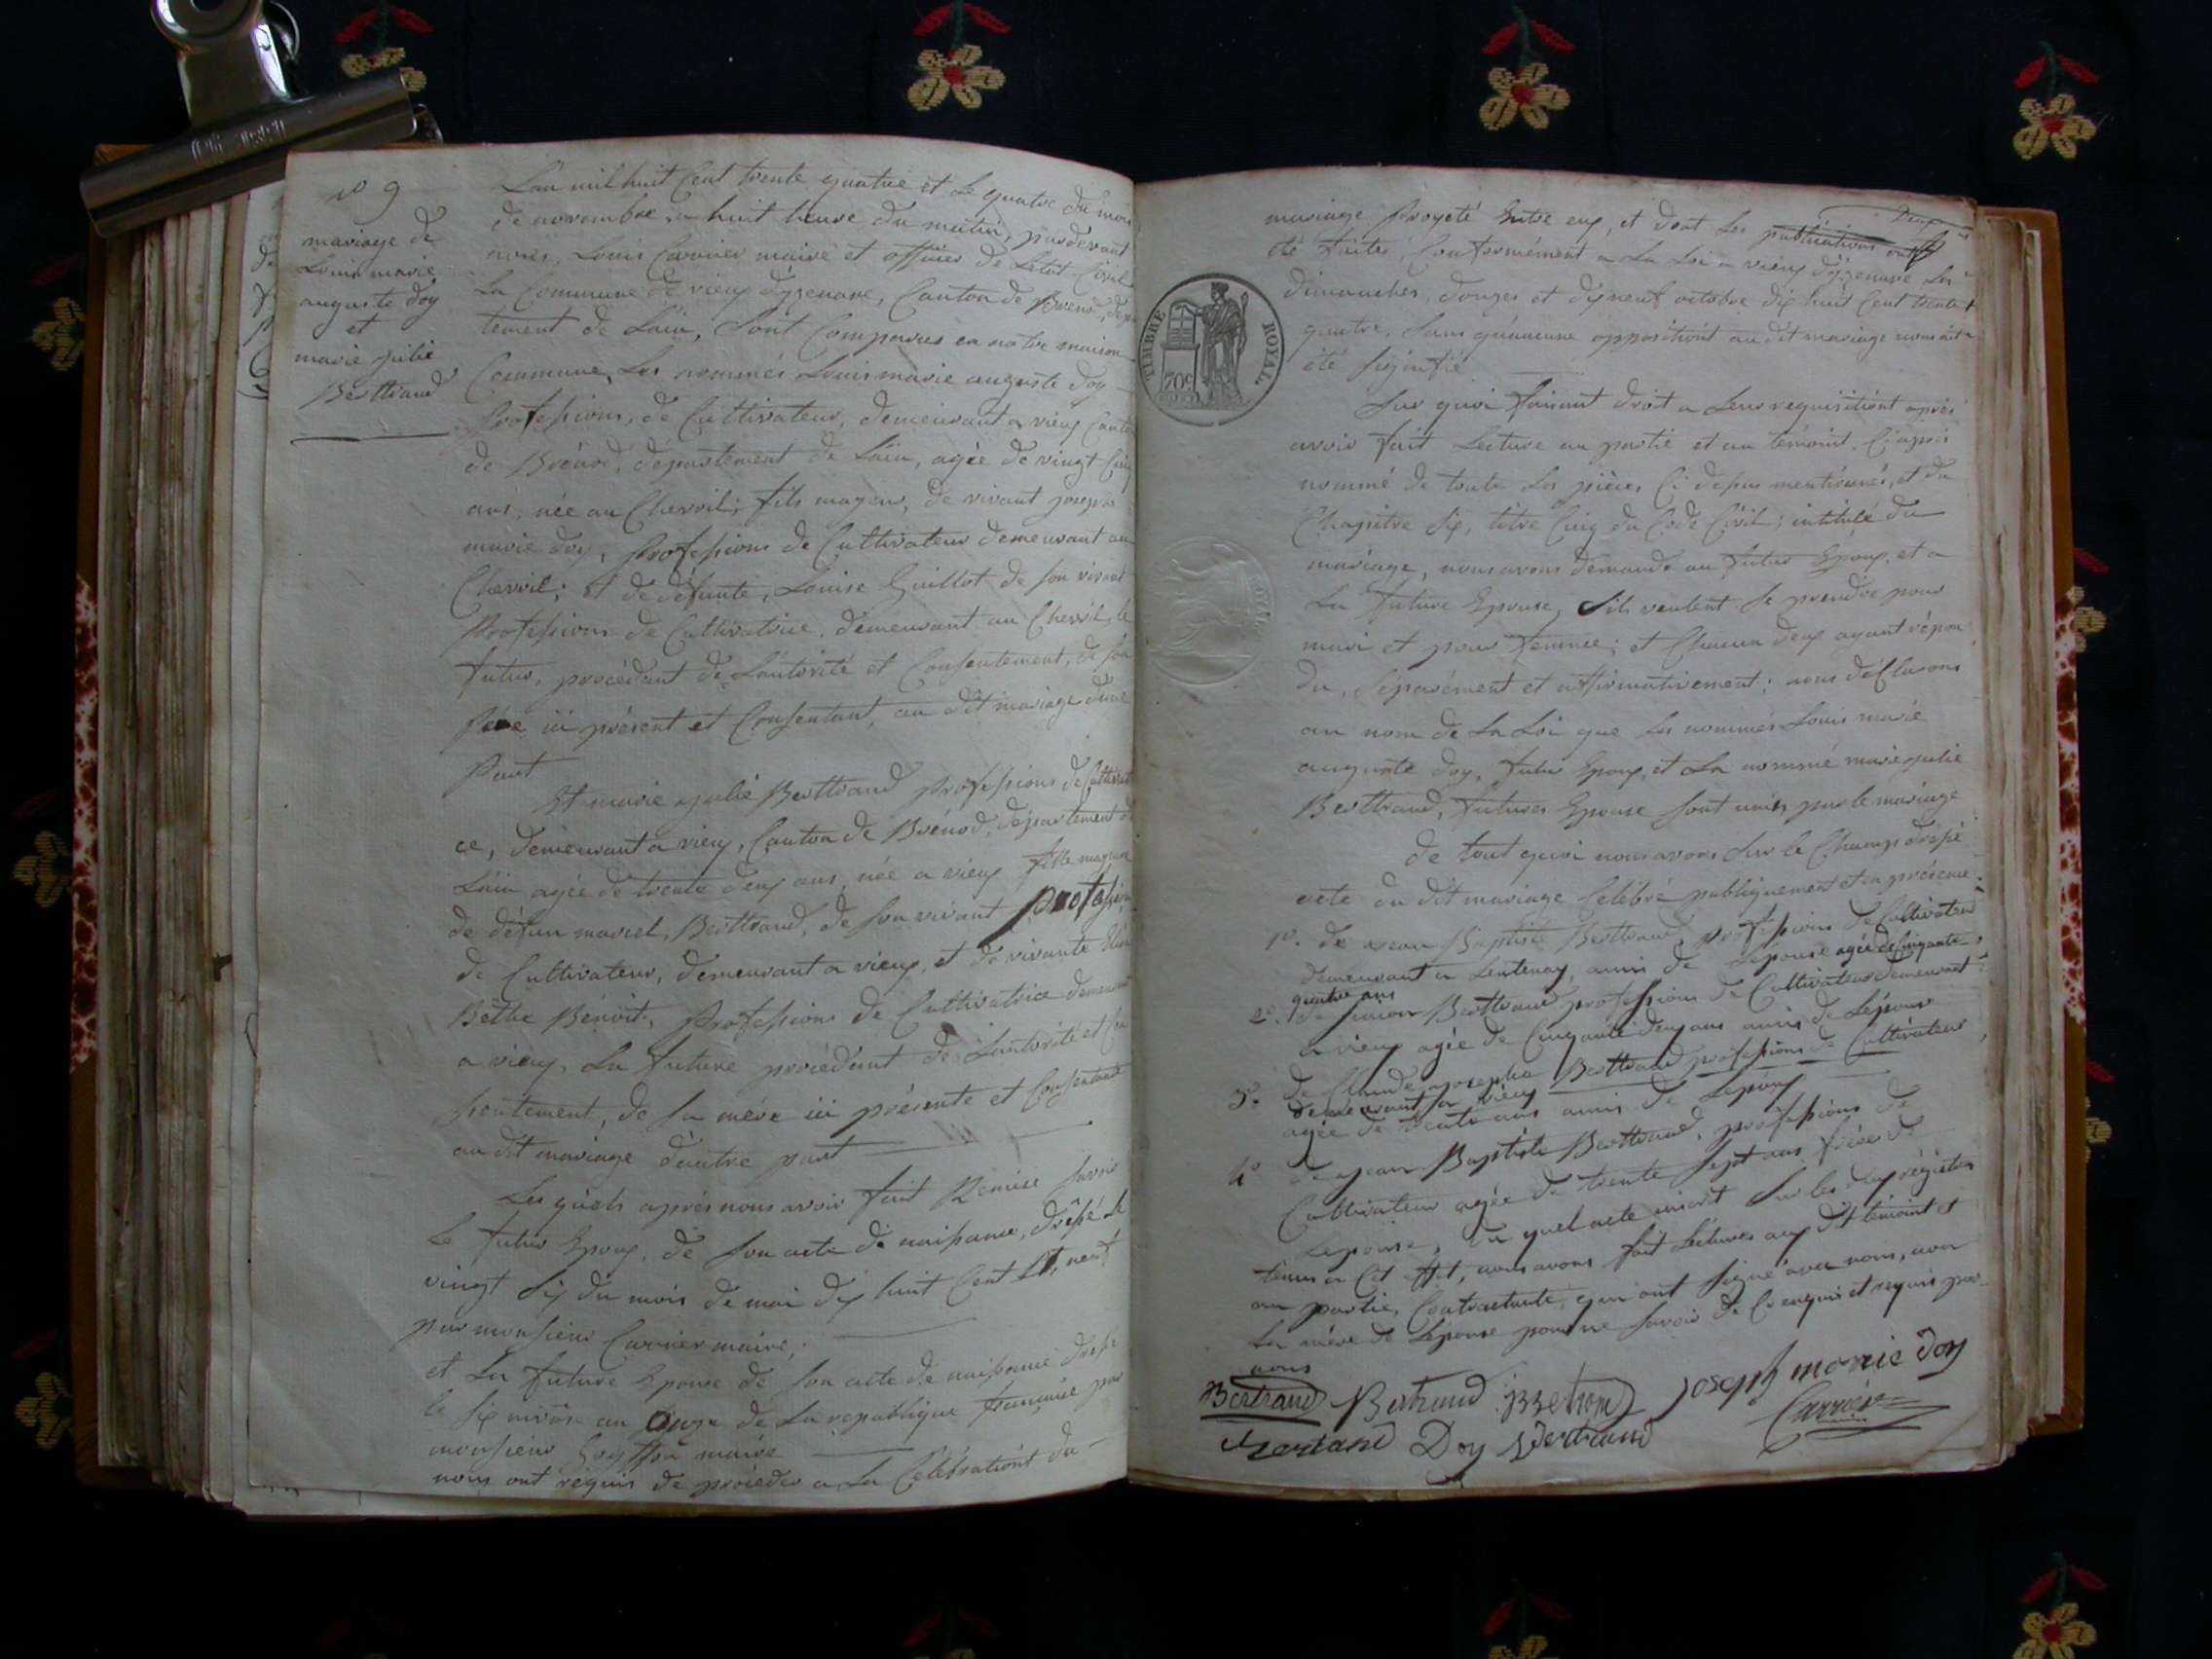 n° 9
mariage de
Louis marie
auguste doy
et
marie julie
Berttrand
L'an mil huit Cent trente quatre et Le quatre du mois
de novembre a huit heure du matin, pardevant
nous, Louis Carrier maire et officier de Létat Civil
La Commune de vieux d'yzenave, Canton de Brenod, dépar
tement de Lain, Sont Comparus en notre maison
Commune, Les nommés Louis marie auguste doy
Profession, de Cultivateur, demeurant a vieux Canton
de Brénod, département de Lain, agée de vingt Cinq
ans, née au Chevril, fils mageur, de vivant joseph
marie doy, Profession de Cultivateur demeurant au
Chevril; Et de défunte, Louise Guillot de son vivant
Profession de Cultivatrice, demeurant au Chevril, le
futur, procédant de Lautorité et Consentement, de son
Père ici présent et Consentant, au dit mariage dune
Part
Et marie julie Berttrand profession de Cultivatri
ce, demeurant a vieux, Canton de Brénod, département de
Lain agée de trente deux ans, née a vieux fille mageur
de défun marcel, Berttrand, de son vivant Profession
de Cultivateur, demeurant a vieux, et de vivante
Béthe Bénoit, Profession de Cultivatrice demeurant
a vieux, La future procédant de Lautorité et Con
sentement, de sa mére ici présente et Consentante
au dit mariage dautre part
Les quels aprés nous avoir fait Remise savoir
Le futur Epoux, de son acte de naissance, dréssé le
vingt Six du mois de mai dix huit Cent neuf
par monsieur Carrier maire;
et La future Epouse de son acte de naissance dressé
le Six nivôse an onze de La republique francaise par
monsieur maire
nous ont réquis de procéder a La Celébrationt du
mariage Proyeté Entre eux, et dont Les publications ont
été faites, Conformément a La Loi a vieux d'yzenave Les
dimanches, douze et dixneuf octobre dix huit Cent trente
quatre, Sans qu'aucune oppositiont au dit mariage nous ait
été signifié
TIMBRE ROYAL
70c
Sur quoi faisant droit a Leur requisitiont aprés
avoir fait Lecture au partie et au témoint, Ci aprés
nommé de toute Les pièces Ci dessus mentionnés, et du
Chapitre Six, titre Cinq du Code Civil; intitulé du
mariage, nous avons demandé au futur Epoux, et a
La future Epouse, S'ils veulent Se prendre pour
mari et pour femme; et Chacun deux ayant répon
du, Séparément et affirmativement; nous déClarons
au nom de La Loi que Les nommés Louis marie
auguste doy, futur Epoux, et La nommé marie julie
Berttrand, futures Epouse sont unis par le mariage
de tout quoi nous avons sur le Champ dréssé
acte du dit mariage Celébré publiquement et en présence
1°. de jean Baptiste Berttrand, profession de Cultivateur
demeurant a Lentenay, ami de Lépouse agée de Cinquante
quatre ans
2°. de Berttrand profession de Cultivateur demeurant
a vieux agée de Cinquante deux ans amis de Lépouse
3°. de Claude josephe Berttrand profession de Cultivateur
demeurant a vieux
agée de trente ans amis de Lépoux
4° de jean Baptiste Berttrand, profession de
Cultivateur agée de trente Sept ans frére de
Lépouse, du quel acte inscrit Sur les deux régistres
tenus a Cet effet, nous avons fait Lectures aux dit témoint et
au partie, Contractante, qui ont signé avec nous, non
La mére de Lépouse pour ne Savoir de Ce enquis et requis par
nous
Bertrand Bertrand joseph marie doy
Carrier
Bertrand Doy Bertrand